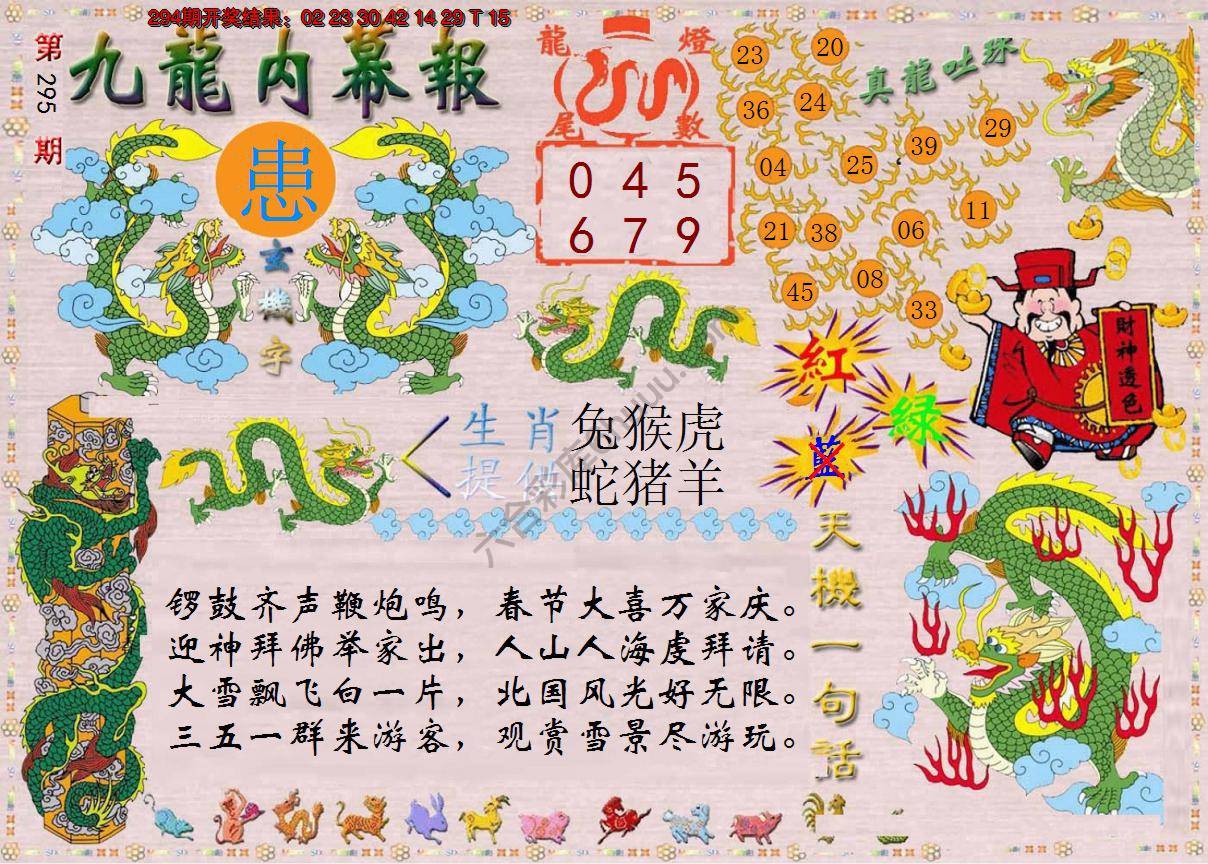 294期开奖结果：02 23 30 42 14 29 T 15
第295期
九龍内幕報
患
玄機字
龍燈
尾數
0 4 5
6 7 9
真龍吐珠
23 20
36 24
04 25 39 29
21 38 06 11
45 08 33
財神透色
紅
綠
藍
生肖 兔猴虎
提供 蛇猪羊
锣鼓齐声鞭炮鸣，春节大喜万家庆。
迎神拜佛举家出，人山人海虔拜请。
大雪飘飞白一片，北国风光好无限。
三五一群来游客，观赏雪景尽游玩。
天機一句話